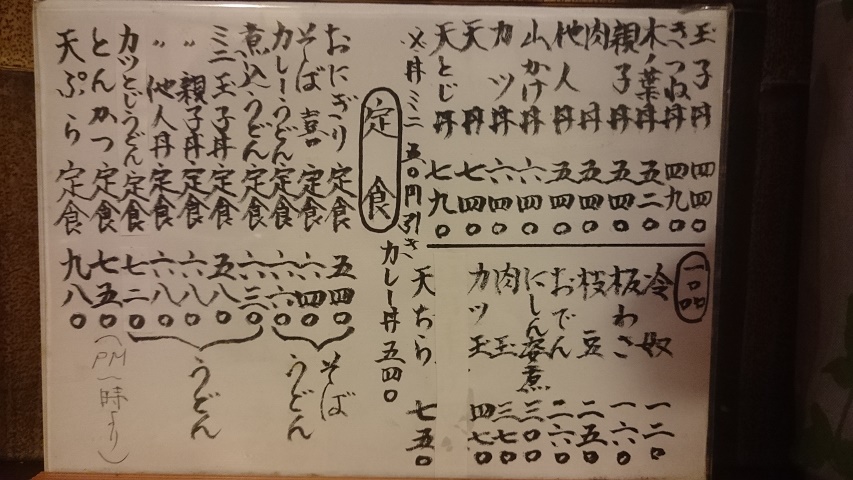 玉子丼 四四〇
きつね丼 四九〇
木ノ葉丼 五二〇
親子丼 五四〇
肉丼 五四〇
他人丼 五四〇
山かけ丼 六四〇
カツ丼 六四〇
天丼 七四〇
天とじ丼 七九〇
※丼ミニ 五〇円引き
一品
冷奴 一二〇
板わさ 一六〇
枝豆 二五〇
おでん 二六〇
にしん姿煮 三〇〇
肉玉 三七〇
カツ玉 四七〇
天ちら 七五〇
カレー丼 五四〇
定食
おにぎり定食 五四〇
そば喜定食 六四〇
カレーうどん定食 六六〇
煮込うどん定食 六三〇
ミニ玉子丼定食 五八〇
〃 親子丼定食 六八〇
〃 他人丼定食 六八〇
カツとじうどん定食 七二〇
とんかつ定食 七五〇
天ぷら定食 九八〇
そば
うどん
うどん
(PM一時より)